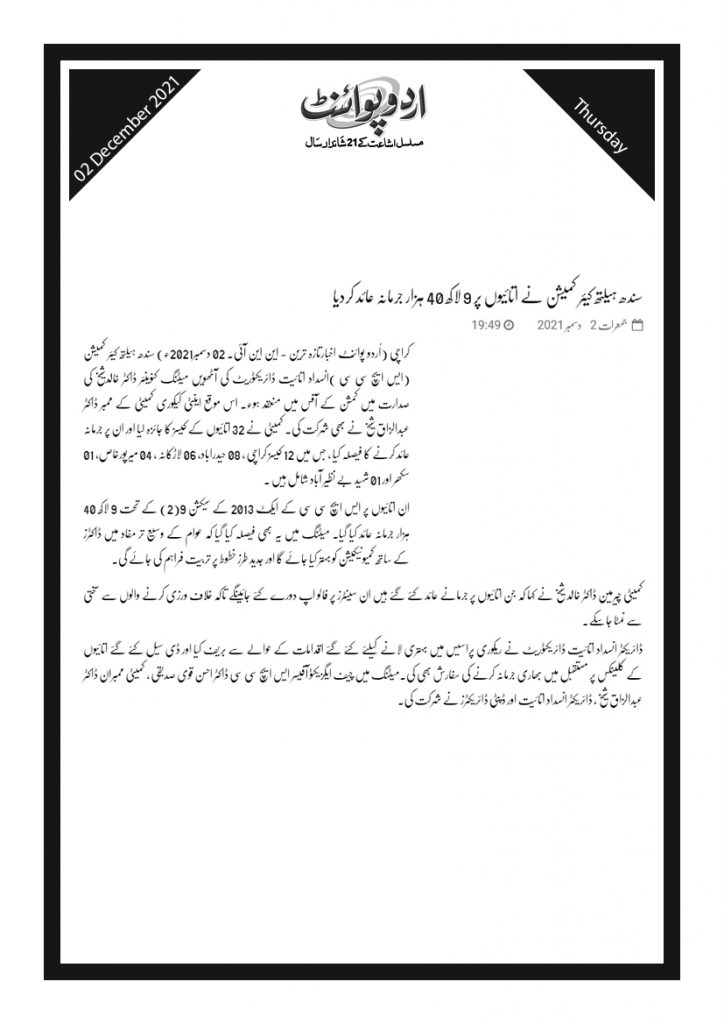 02 December 2021
Thursday
اردو پوائنٹ
مسلسل اشاعت کے 21 شاندار سال
سندھ ہیلتھ کیئر کمیشن نے اتائیوں پر 9 لاکھ 40 ہزار جرمانہ عائد کردیا
جمعرات 2 دسمبر 2021 19:49
کراچی (اُردو پوائنٹ اخبارتازہ ترین - این این آئی۔ 02 دسمبر2021ء) سندھ ہیلتھ کیئر کمیشن
(ایس ایچ سی سی )انسداد اتائیت ڈائریکٹوریٹ کی آٹھویں میٹنگ کنوینئر ڈاکٹر خالدشیخ کی
صدارت میں کمشن کے آفس میں منعقد ہوء۔ اس موقع اینٹی کیکوری کمیٹی کے ممبر ڈاکٹر
عبدالزاق شیخ نے بھی شرکت کی۔ کمیٹی نے 32 اتائیوں کے کیسز کا جائزہ لیا اور ان پر جرمانہ
عائد کرنے کا فیصلہ کیا ، جس میں 12 کیسز کراچی ، 08 حیدراباد، 06 لاڑکانہ ، 04 میرپورخاص، 01
سکھر اور 01 شہید بے نظیر آباد شامل ہیں ۔
ان اتائیوں پر ایس ایچ سی سی کے ایکٹ 2013 کے سیکشن 9(2) کے تحت 9 لاکھ 40
ہزار جرمانہ عائد کیا گیا۔ میٹنگ میں یہ بھی فیصلہ کیا گیا کہ عوام کے وسیع تر مفاد میں ڈاکٹرز
کے ساتھ کمیونیکیشن کو بہتر کیا جائے گا اور جدید طرز خطوط پر تربیت فراہم کی جائے گی۔
کمیٹی چیرمین ڈاکٹر خالدشیخ نے کہا کہ جن اتائیوں پر جرمانے عائد کئے گئے ہیں ان سینٹرز پر فالو اپ دورے کئے جائینگے تاکہ خلاف ورزی کرنے والوں سے سختی
سے نمٹا جاسکے۔
ڈائریکٹر انسداد اتائیت ڈائریکٹوریٹ نے ریکوری پراسیس میں بہتری لانے کیلئے کئے گئے اقدامات کے حوالے سے بریف کیا اور ڈی سیل کئے گئے اتائیوں
کے کلینکس پر مستقبل میں بھاری جرمانہ کرنے کی سفارش بھی کی۔میٹنگ میں چیف ایگزیکٹو آفیسر ایس ایچ سی سی ڈاکٹر احسن قوی صدیقی ، کمیٹی ممبران ڈاکٹر
عبدالزاق شیخ ، ڈائریکٹر انسداد اتائیت اور ڈپٹی ڈائریکٹرز نے شرکت کی۔